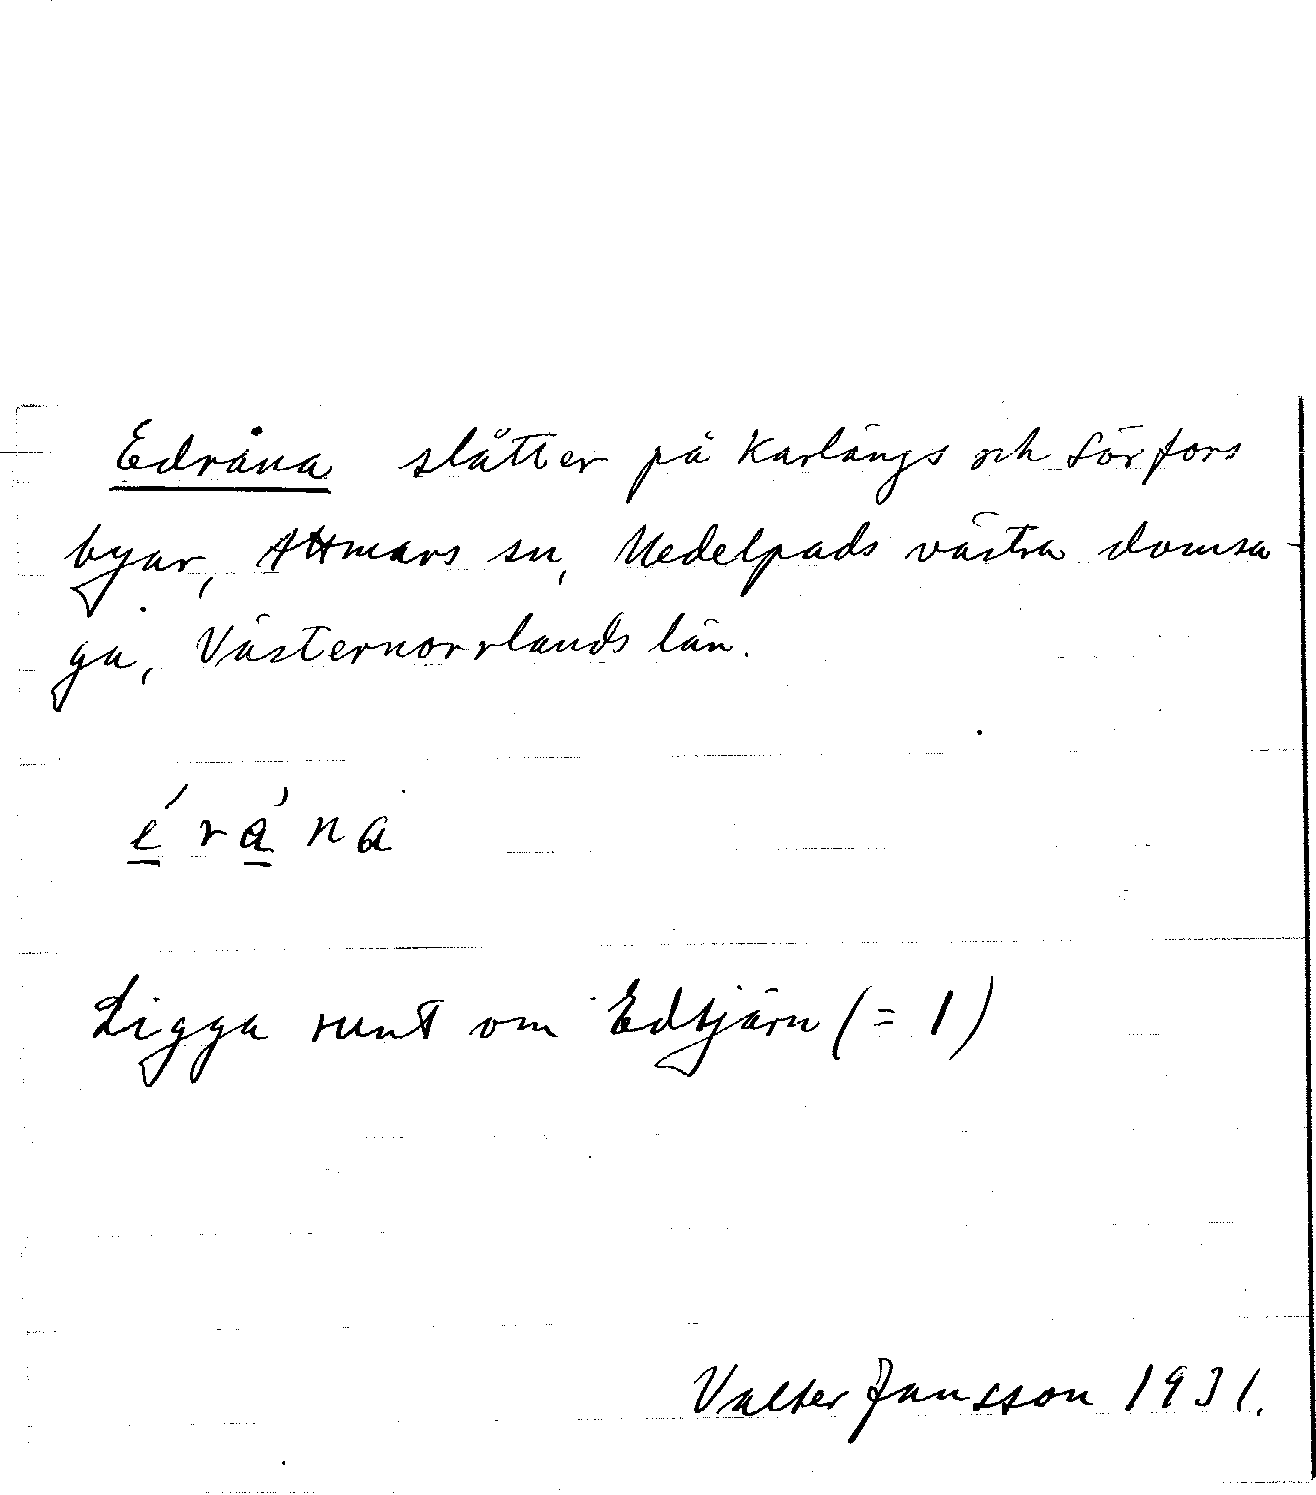 Edråna slåtter på Karlängs och Sörfors
byar, Attmars sn, Medelpads västra domsa-
ga, Västernorrlands län.
é rá n a
Ligga runt om Edtjärn (= 1)
Valter Jansson 1931.